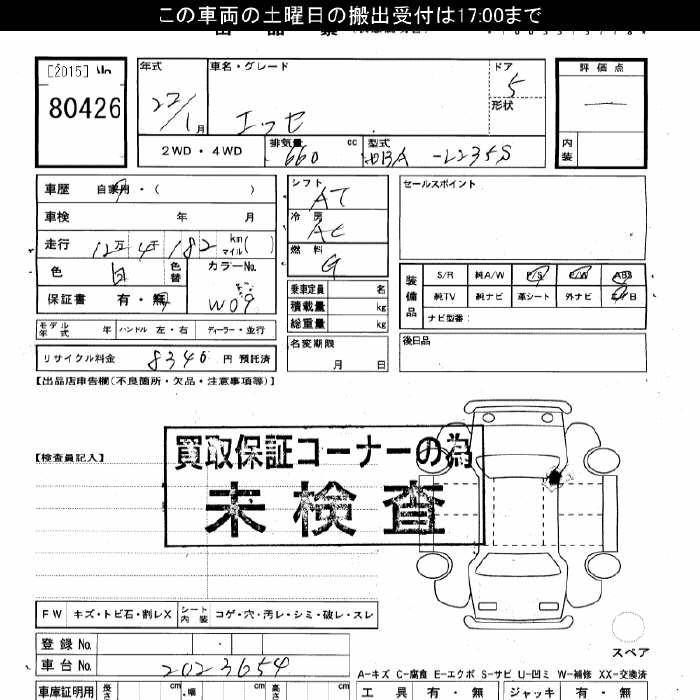 この車両の土曜日の搬出受付は17:00まで
[2015]
80426
年式
22/1月
車名・グレード
エッセ
ドア
5
形状
評価点
内装
2WD・4WD
排気量 660 cc
型式 -L235S
車歴 自家用・( )
車検 年 月
走行 12万 4千 182 km マイル( )
色 白 色替 カラーNo. W09
保証書 有・無
モデル年式 年 ハンドル 左・右 ディーラー・並行
リサイクル料金 8340 円 預託済
シフト AT
冷房 AC
燃料 G
乗車定員 名
積載量 kg
総重量 kg
名変期限 月 日
セールスポイント
装備品 S/R 純A/W P/S P/W ABS
純TV 純ナビ 革シート 外ナビ エアB
ナビ型番:
後日品
【出品店申告欄(不良箇所・欠品・注意事項等)】
【検査員記入】
買取保証コーナーの為
未検査
FW キズ・トビ石・割レX シート内装 コゲ・穴・汚レ・シミ・破レ・スレ
登録 No.
車台 No. 2023654
スペア
A-キズ C-腐食 E-エクボ S-サビ U-凹ミ W-補修 XX-交換済
車庫証明用 長さ cm 幅 cm 高さ cm
工具 有・無 ジャッキ 有・無